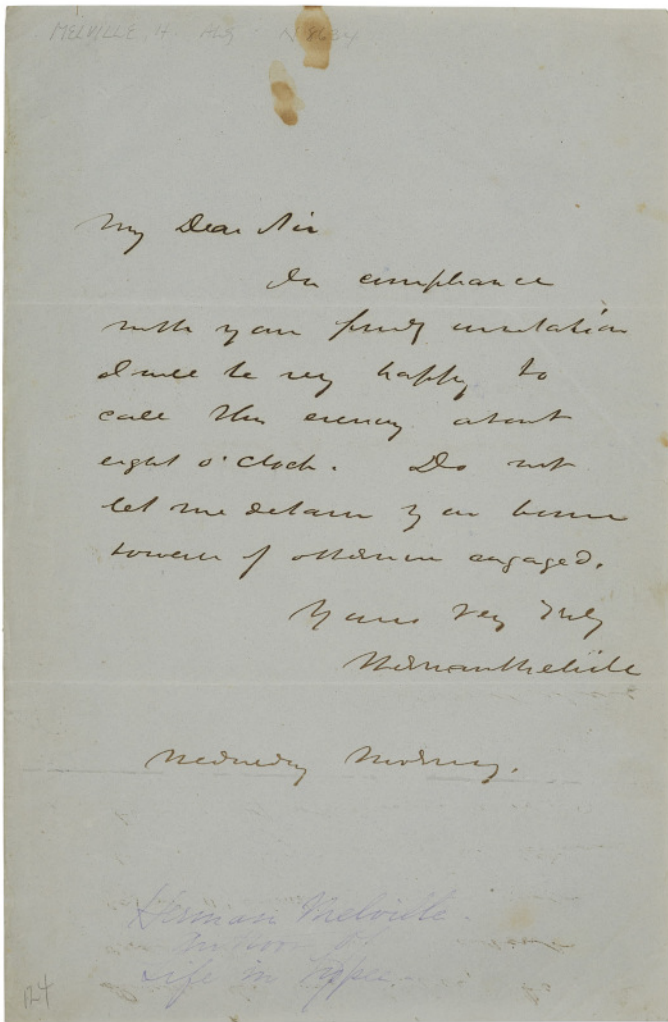 MELVILLE, H
My Dear Sir
In compliance
with your friendly invitation
I will be very happy to
call this evening about
eight o'clock. Do not
let me detain you
if otherwise engaged.
Yours Very Truly
Herman Melville
Wednesday Morning.
Herman Melville.
Author of
Life in Typee